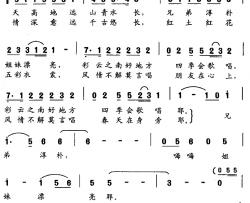 天高地远 山青水长, 兄弟淳朴
情深意远 千古悠长, 红土红花
2 3 2 3 1 2 1 | 7· 1 2 2 2 2 2 3 2 | 0 2 5 5 2 2 3 |
姐妹漂亮, 彩云之南好地方 四季会歌唱,
五彩衣裳, 风情不解莫言唱 朋友在心上,
7· 1 2 2 2 2 2 3 2 | 0 2 5 5 2 2 3 |
彩云之南好地方 四季会歌唱 耶, 兄
风情不解莫言唱 春天在身旁 耶,
弟淳朴, 嗨嗨姐
妹漂亮耶,